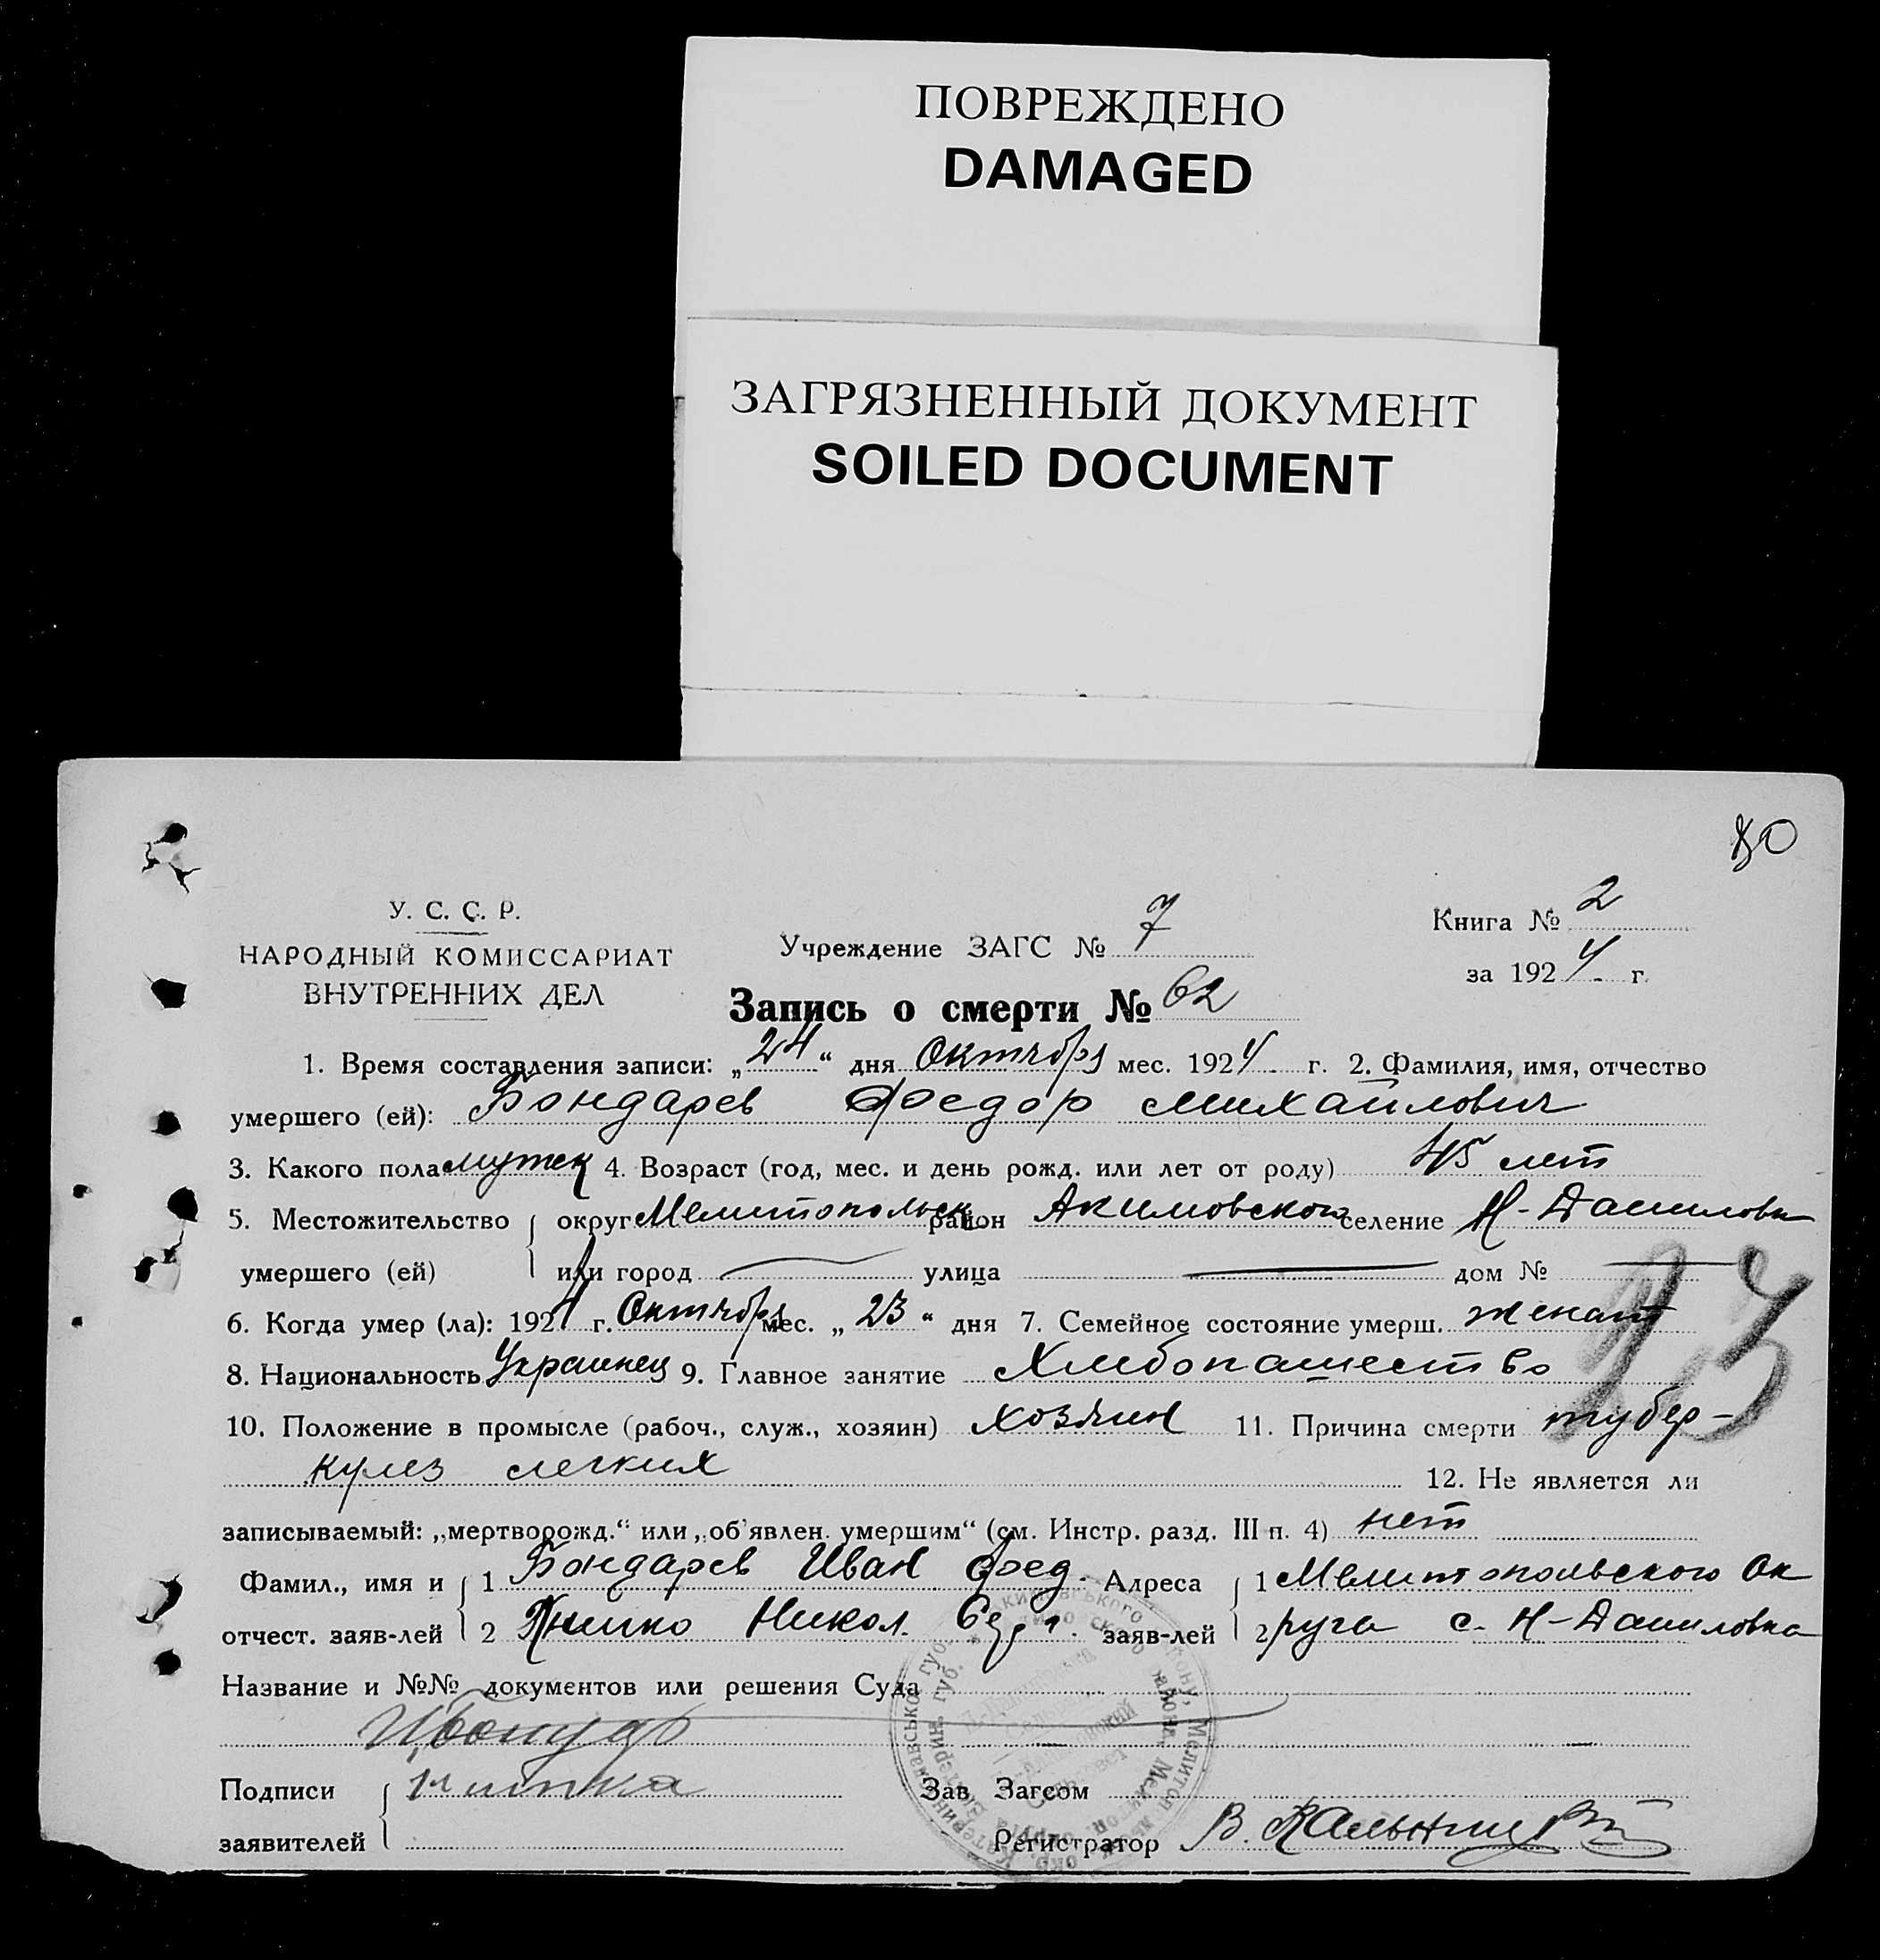 ПОВРЕЖДЕНО
DAMAGED
ЗАГРЯЗНЕННЫЙ ДОКУМЕНТ
SOILED DOCUMENT
80
У. С. С. Р.
НАРОДНЫЙ КОМИССАРИАТ
ВНУТРЕННИХ ДЕЛ
Учреждение ЗАГС № 7
Книга № 2
за 1924 г.
Запись о смерти № 62
1. Время составления записи: „24“ дня Октября мес. 1924 г. 2. Фамилия, имя, отчество
умершего (ей): Бондарев Феодор Михайлович
3. Какого пола мужск 4. Возраст (год, мес. и день рожд. или лет от роду) 45 лет
5. Местожительство округ Мелитопольск район Акимовского селение Н-Даниловк
умершего (ей) или город улица дом №
6. Когда умер (ла): 1924 г. Октября мес. „23“ дня 7. Семейное состояние умерш. женат
8. Национальность Украинец 9. Главное занятие Хлебопашество
13
10. Положение в промысле (рабоч., служ., хозяин) хозяин 11. Причина смерти тубер-
кулез легких 12. Не является ли
записываемый: „мертворожд.“ или „об'явлен. умершим“ (см. Инстр. разд. III п. 4) нет
Фамил., имя и 1 Бондарев Иван Фед. Адреса 1 Мелитопольского Ок
отчест. заяв-лей 2 Никол. заяв-лей 2 руга с. Н-Даниловка
Название и №№ документов или решения Суда
Подписи Зав Загсом
заявителей Регистратор В.